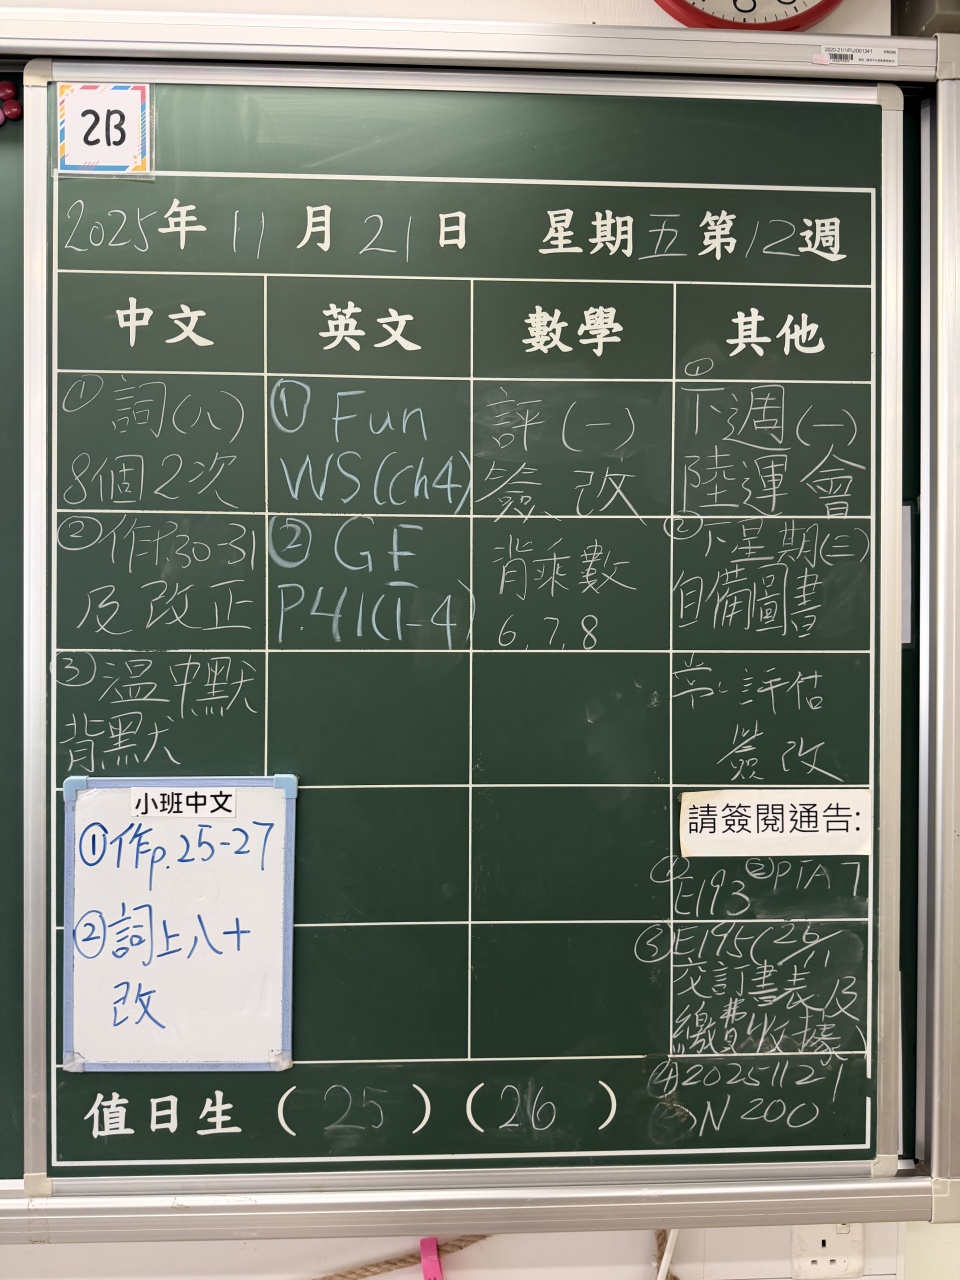 2B
2025年 11 月 21 日 星期五第12週
中文
英文
數學
其他
① 詞(八)
8個2次
② 作p.30-31
及改正
③ 溫中默
背默
① Fun
WS(ch4)
② GF
P.41(1-4)
評(一)
簽、改
背乘數
6, 7, 8
①
下週(一)
陸運會
② 下星期(三)
自備圖書
常、評估
簽改
小班中文
① 作p.25-27
② 詞上八+
改
請簽閱通告:
① E193 ② PTA 7
③ E195(26/11
交訂書表及
繳費收據)
④ 20251121
N 200
值日生 ( 25 ) ( 26 )